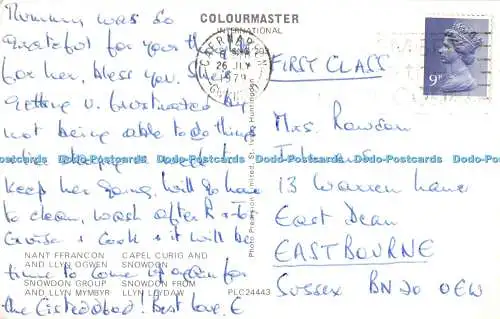 Mummy was so
grateful for your
for her, bless you. She's
getting v. frustrated by
not being able to do things
keep her going. Will go home
to clean, wash after R &
Cruise & Cook & it will be
time to come again for
the Eisteddfod! Best love, E
COLOURMASTER
INTERNATIONAL
CAERNARFON
26 JLY
1979
GWYNEDD
9P
FIRST CLASS
Mrs. Rowdon
13 Warren Lane
East Dean
EASTBOURNE
SUSSEX BN20 0EW
Photo Precision Limited, St. Ives, Huntingdon
NANT FFRANCON
AND LLYN OGWEN
SNOWDON GROUP
AND LLYN MYMBYR
CAPEL CURIG AND
SNOWDON
SNOWDON FROM
LLYN LLYDAW
PLC24443
Dodo-Postcards Dodo-Postcards Dodo-Postcards Dodo-Postcards Dodo-Postcards Dodo-Postcards